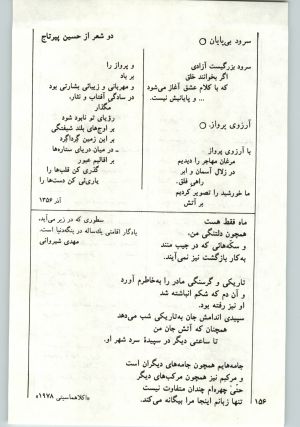 دو شعر از حسین پیرتاج
سرود بی‌پایان
سرود بزرگیست آزادی
اگر بخوانند خلق
که با کلام عشق آغاز می‌شود
... و پایانیش نیست.
آرزوی پرواز
با آرزوی پرواز
مرغان مهاجر را دیدیم
در زلال آسمان و ابر
راهی فلق.
ما خورشید را تصویر کردیم
بر آتش
و پرواز را
بر باد
و مهربانی و زیبائی بشارتی بود
در سادگی آفتاب و نثار،
مگذار
رؤیای تو نابود شود
بر اوج‌های بلند شیفتگی
بر این زمین گرداگرد
ـ در میان دریای ستاره‌ها
بر اقالیم عبور
گذری کن قلب‌ها را
یاری‌ئی کن دست‌ها را
آذر ۱۳۵۶
سطوری که در زیر می‌آید،
یادگار اقامتی یکساله در ینگه‌دنیا است.
مهدی شیروانی
ماه فقط هست
همچون دلتنگی من.
و سکه‌هائی که در جیب منند
به‌کار بازگشت نیز نمی‌آیند.
تاریکی و گرسنگی مادر را به‌خاطرم آورد
و آن دم که شکم انباشته شد
او نیز رفته بود.
سپیدی اندامش جان به‌تاریکی شب می‌دهد
همچنان که آتش جان من
تا ساعتی دیگر در سپیدهٔ سرد شهر او.
جامه‌هایم همچون جامه‌های دیگران است
و مرکبم نیز همچون مرکب‌های دیگر
حتی چهره‌ام چندان متفاوت نیست
تنها زبانم اینجا مرا بیگانه می‌کند.
«اکلاهماسیتی ۱۹۷۸»
۱۵۶